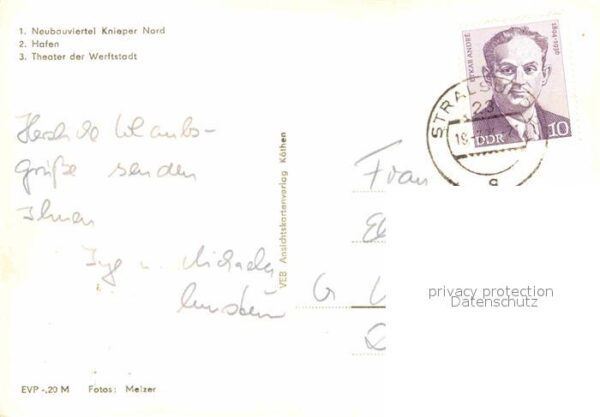 1. Neubauviertel Knieper Nord
2. Hafen
3. Theater der Werftstadt
Urlaubs-
Grüße senden
Ihnen
Inge u.
VEB Ansichtskartenverlag Köthen
Frau
G
EVP -,20 M Fotos: Melzer
ETKAR ANDRÉ
1894-1936
DDR 10
STRALSU
23
privacy protection
Datenschutz